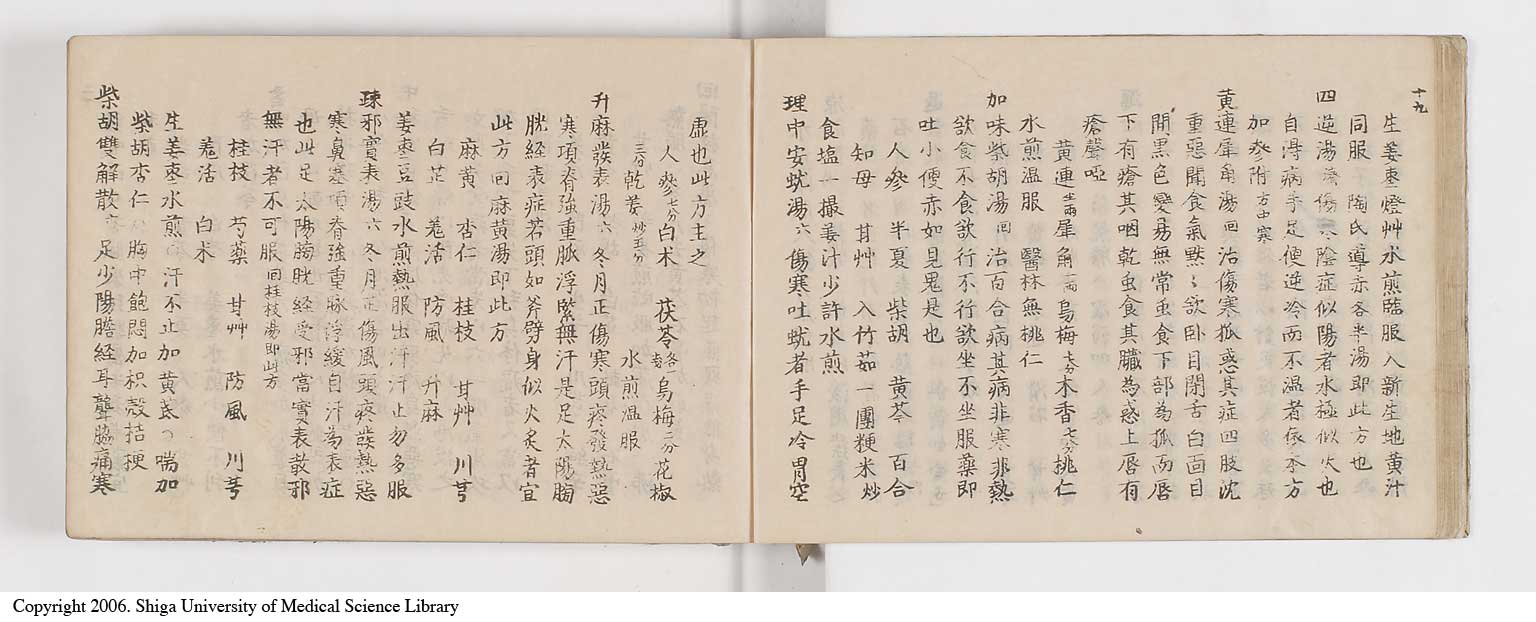 十九
生姜枣燈艸水煎臨服入新生地黄汁
同服 陶氏導赤各半湯即此方也
四逆湯 傷寒陰症似陽者水極似火也
自得病手足便逆冷而不温者依本方
加參附 方中寒
黄連犀角湯 回 治傷寒狐惑其症四肢沈
重惡聞食氣黙〻欲卧目閉舌白面目
間黒色變易無常虫食下部為狐而唇
下有瘡其咽乾虫食其臓為惑上唇有
瘡聲啞
黄連 半両 犀角 一両 烏梅 七分 木香 七分 桃仁
水煎温服 醫林無桃仁
加味柴胡湯 回 治百合病其病非寒非熱
欲食不食欲行不行欲坐不坐服薬即
吐小便赤如見鬼是也
人參 半夏 柴胡 黄芩 百合
知母 甘艸 入竹茹一團粳米炒
食塩一撮姜汁少許水煎
理中安蚘湯 六 傷寒吐蚘者手足冷胃空
虚也此方主之
人參 七分 白术 茯苓 各一 烏梅 二分 花椒
三分 乾姜 炒五分 水煎温服
升麻發表湯 六 冬月正傷寒頭疼發熱惡
寒項脊強重脈浮緊無汗是足太陽膀
胱経表症若頭如斧劈身似火炙者宜
此方 回麻黄湯即此方
麻黄 杏仁 桂枝 甘艸 川芎
白芷 羗活 防風 升麻
姜枣豆豉水煎熱服出汗汗止勿多服
疎邪實表湯 六 冬月正傷風頭疼發熱惡
寒鼻塞項脊強重脉浮緩自汗為表症
也此足太陽膀胱経受邪當實表散邪
無汗者不可服 回桂枝湯即此方
桂枝 芍薬 甘艸 防風 川芎
羗活 白术
生姜枣水煎 汗不止加黄芪 喘加
柴胡杏仁 胸中飽悶加枳殻桔梗
柴胡雙解散 足少陽膽経耳聾脇痛寒
Copyright 2006. Shiga University of Medical Science Library